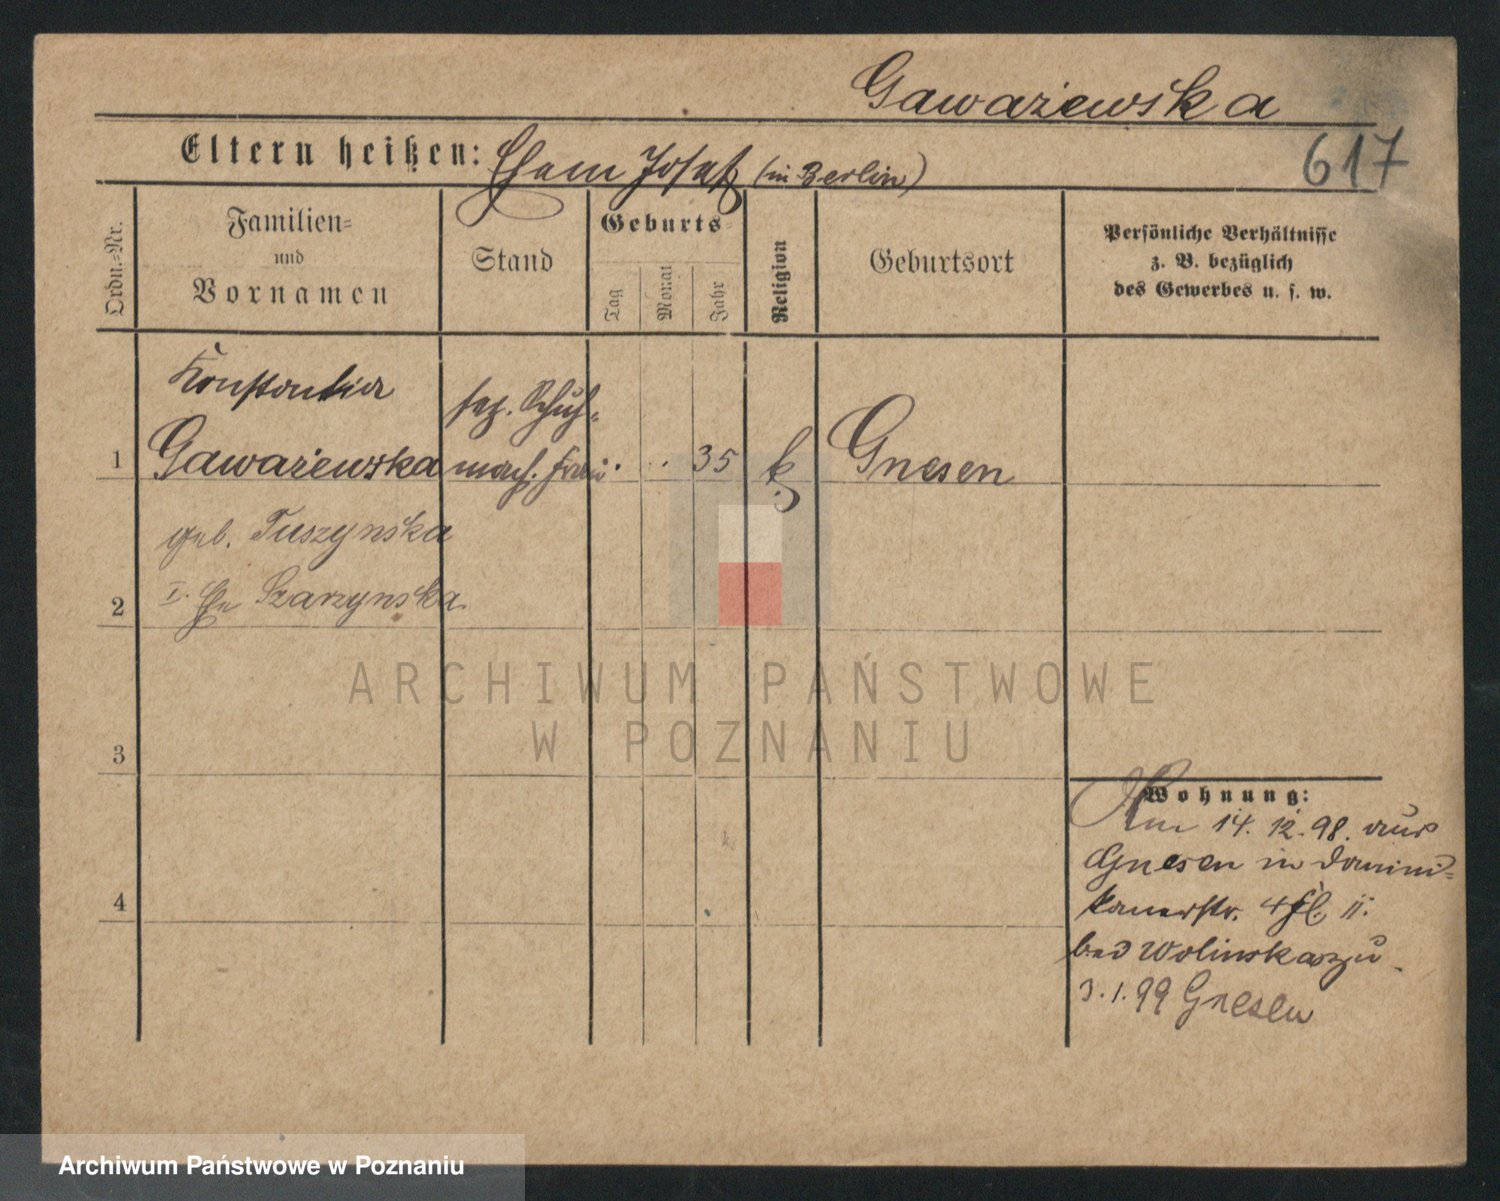 Gaważewska
617
Eltern heißen: Ehem Josef (in Berlin)
Ordn.=Nr.
Familien=
und
Vornamen
Stand
Geburts=
Tag
Monat
Jahr
Religion
Geburtsort
Persönliche Verhältnisse
z. B. bezüglich
des Gewerbes u. s. w.
Konstantia
sep. Schuh-
1 Gaważewska mach. Frau . . 35 k. Gnesen
geb. Tuszynska
2 I. Ehe Szarzynska
ARCHIWUM PAŃSTWOWE
W POZNANIU
3
Wohnung:
14. 12. 98. aus
Gnesen in Domini=
4 kanerstr. 4 II.
bei Wolinska
3.1.99 Gnesen
Archiwum Państwowe w Poznaniu